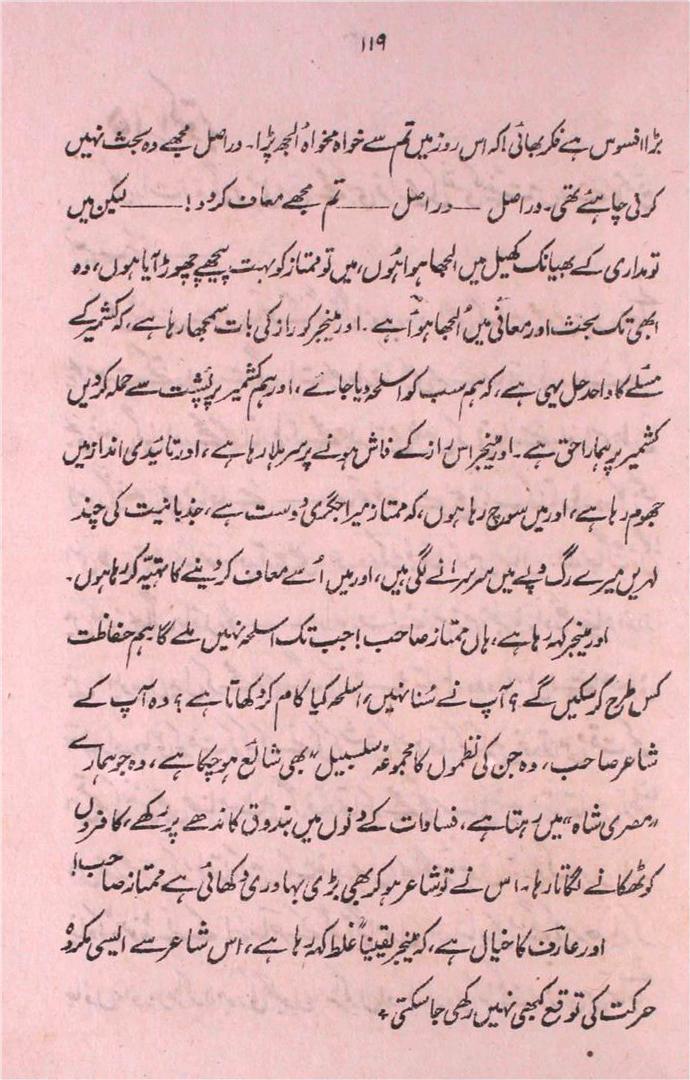 ۱۱۹
بڑا افسوس ہے فکر بھائی! کہ اس روز میں تم سے خواہ مخواہ اُلجھ پڑا۔ دراصل مجھے وہ بحث نہیں
کرنی چاہئے تھی۔ دراصل ـــــ دراصل ـــــ تم مجھے معاف کردو! ـــــ لیکن میں
تو مداری کے بھیانک کھیل میں الجھا ہوا ہُوں، میں تو ممتاز کو بہت پیچھے چھوڑ آیا ہوں، وہ
ابھی تک بحث اور معافی میں اُلجھا ہوا ہے۔ اور مینجر کو راز کی بات سمجھا رہا ہے، کہ کشمیر کے
مسئلے کا واحد حل یہی ہے، کہ ہم سب کو اسلحہ دیا جائے، اور ہم کشمیر پر پُشت سے حملہ کردیں
کشمیر پر ہمارا حق ہے۔ اور مینجر اس راز کے فاش ہونے پر سر ہلا رہا ہے، اور تائیدی انداز میں
جھوم رہا ہے، اور میں سوچ رہا ہوں، کہ ممتاز میرا جگری دوست ہے، جذباتیت کی چند
لہریں میرے رگ وپے میں سرسرانے لگی ہیں، اور میں اُسے معاف کردینے کا تہیّہ کر رہا ہوں۔
اور مینجر کہہ رہا ہے، ہاں ممتاز صاحب! جب تک اسلحہ نہیں ملے گا ہم حفاظت
کس طرح کرسکیں گے؟ آپ نے سُنا نہیں، اسلحہ کیا کام کر دکھاتا ہے؟ وہ آپ کے
شاعر صاحب، وہ جن کی نظموں کا مجموعہ "سلسبیل" بھی شائع ہوچکا ہے، وہ جو ہمارے
"مصری شاہ" میں رہتا ہے، فسادات کے دنوں میں بندوق کاندھے پر رکھے، کافروں
کو ٹھکانے لگاتا رہا۔ اس نے تو شاعر ہو کر بھی بڑی بہادری دکھائی ہے ممتاز صاحب!
اور عارف کا خیال ہے، کہ مینجر یقیناً غلط کہہ رہا ہے، اس شاعر سے ایسی مکروہ
حرکت کی توقع کبھی نہیں رکھی جاسکتی ٭